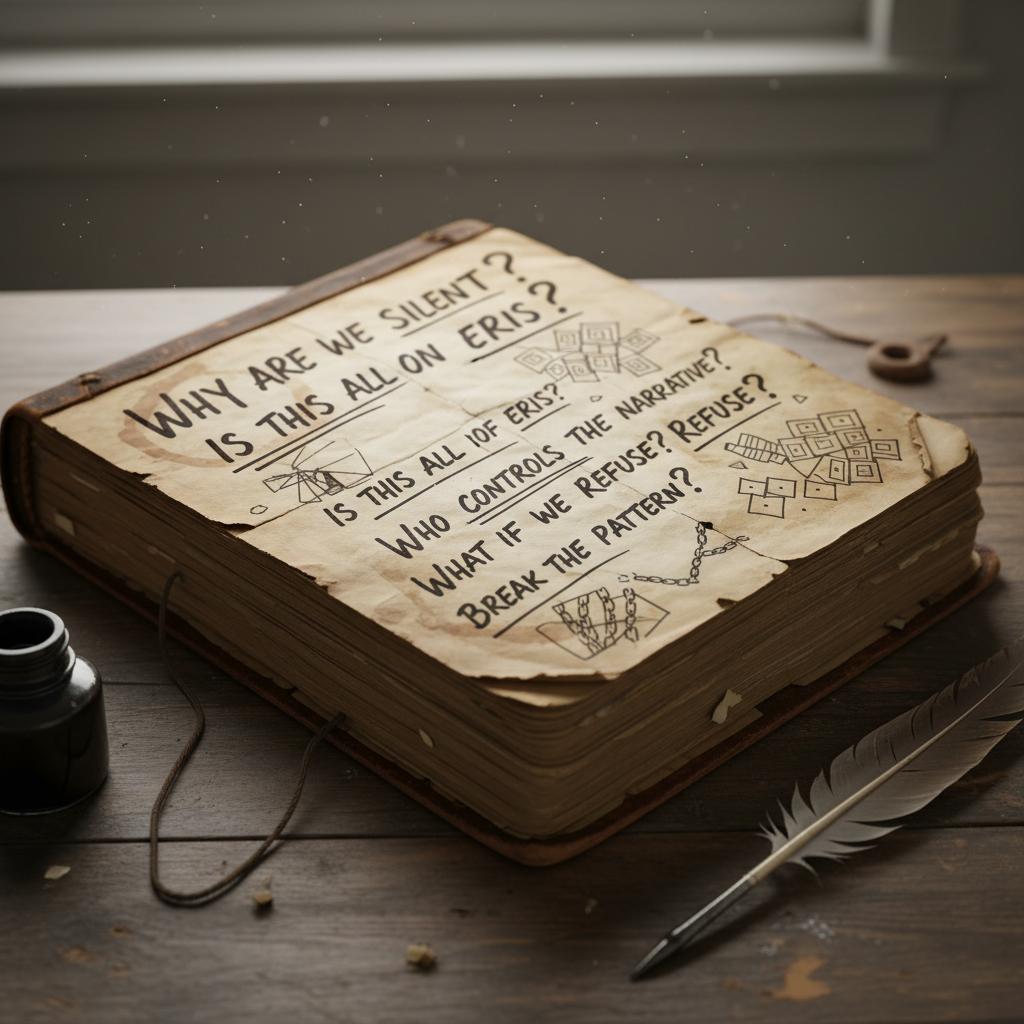 WHY ARE WE SILENT?
IS THIS ALL ON ERIS?
IS THIS ALL IOF ERIS?
WHO CONTROLS THE NARRATIVE?
WHAT IF WE REFUSE? REFUSE?
BREAK THE PATTERN?